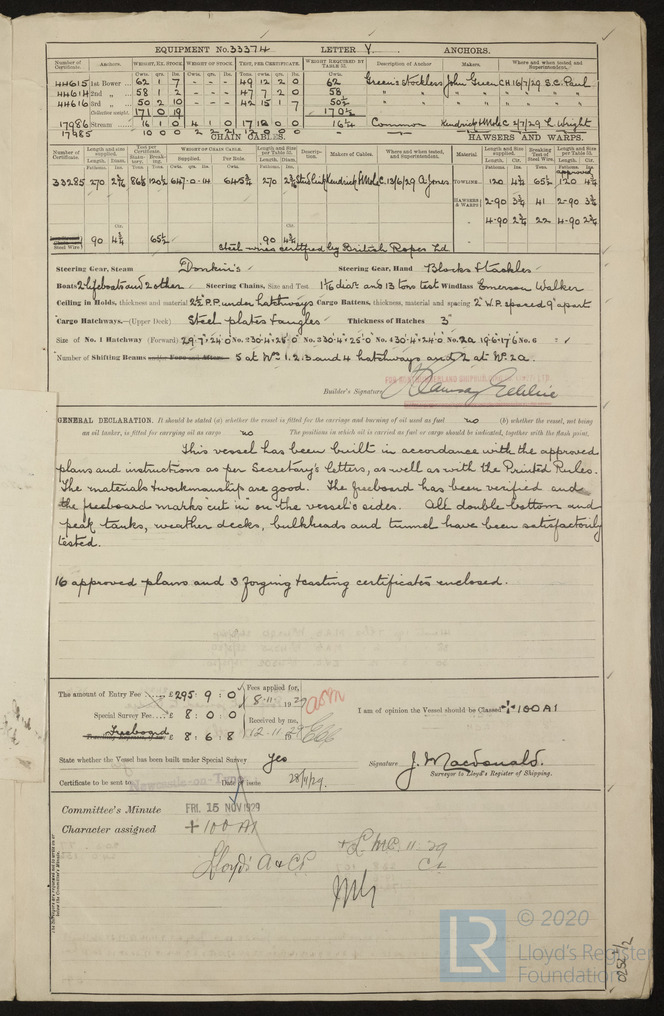 EQUIPMENT No. 33374 LETTER Y. ANCHORS.
Number of Certificate. Anchors. WEIGHT, EX. STOCK WEIGHT OF STOCK. TEST, PER CERTIFICATE. WEIGHT REQUIRED BY TABLE 53. Description of Anchor Makers. Where and when tested and Superintendent.
Cwts. qrs. lbs. Tons. cwts. qrs. lbs. Cwts.
44615 1st Bower 62 1 7 - - - 49 12 2 0 62 Green's Stockless John Green CH 16/7/29 S.C. Paul
44614 2nd " 58 1 2 - - - 47 7 2 0 58 " " " " "
44616 3rd " 50 2 10 - - - 42 15 1 7 50½ " " " " "
Collective weight. 171 0 19 170½
17986 Stream 16 1 0 4 1 0 17 18 0 0 16¼ Common
17985 10 0 0
CHAIN CABLES. HAWSERS AND WARPS.
Number of Certificate. Length and size supplied. Test per Certificate. WEIGHT OF CHAIN CABLE. Length and Size per Table 53. Description. Makers of Cables. Where and when tested, and Superintendent. Material Length and Size supplied. Breaking Test of Steel Wire. Length and Size per Table 53.
Fathoms. Diam. Supplied. Per Rule. Fathoms. Diam. Fathoms. Cir. Tons. Fathoms. Cir.
approved
33285 270 2 7/16 86⅛ 120½ 647-0-14 645¾ 270 Stud Link 13/6/29 A Jones TOWLINE 120 4¾ 65½ 120 4¾
HAWSERS & WARPS 2-90 3¾ 41 2-90 3¾
4-90 2¾ 22 4-90 2¾
Steel Wire 90 4¾ 65½ 90 4¾
Steel wires certified by British Ropes Ld
Steering Gear, Steam Donkin's Steering Gear, Hand Blocks & tackles
Boats 2 lifeboats and 2 other Steering Chains, Size and Test 1 5/16 diar. and 13 tons test Windlass Emerson Walker
Ceiling in Holds, thickness and material 2½" P.P. under hatchways Cargo Battens, thickness, material and spacing 2" W.P. spaced 9" apart
Cargo Hatchways.—(Upper Deck) Steel plates & angles Thickness of Hatches 3"
Size of No. 1 Hatchway (Forward) 29'·7"×24'·0" No. 2 30'·4"×28'·0" No. 3 30'·4"×25'·0" No. 4 30'·4"×24'·0" No. 2A 19'·6"×17'·6" No. 6
Number of Shifting Beams 5 at Nos. 1. 2. 3. and 4 hatchways and 2 at No. 2A.
Builder's Signature
GENERAL DECLARATION. It should be stated (a) whether the vessel is fitted for the carriage and burning of oil used as fuel no (b) whether the vessel, not being
an oil tanker, is fitted for carrying oil as cargo no The positions in which oil is carried as fuel or cargo should be indicated, together with the flash point.
This vessel has been built in accordance with the approved
plans and instructions as per Secretary's letters, as well as with the Printed Rules.
The materials & workmanship are good. The freeboard has been verified and
the freeboard marks "cut in" on the vessel's sides. All double bottom and
peak tanks, weather decks, bulkheads and tunnel have been satisfactorily
tested.
16 approved plans and 3 forging & casting certificates enclosed.
The amount of Entry Fee £ 295 : 9 : 0 Fees applied for, 8·11·1929
Special Survey Fee £ 8 : 0 : 0 Received by me,
Freeboard £ 8 : 6 : 8 12·11·29
I am of opinion the Vessel should be Classed +100A1
State whether the Vessel has been built under Special Survey Yes Signature J. Macdonald.
Surveyor to Lloyd's Register of Shipping.
Certificate to be sent to Newcastle-on-Tyne Date of issue 28/11/29.
Committee's Minute FRI. 15 NOV 1929
Character assigned +100A1
+L.M.C. 11.29
Lloyd's A & CP. CL
© 2020
LR
Lloyd's Register
Foundation